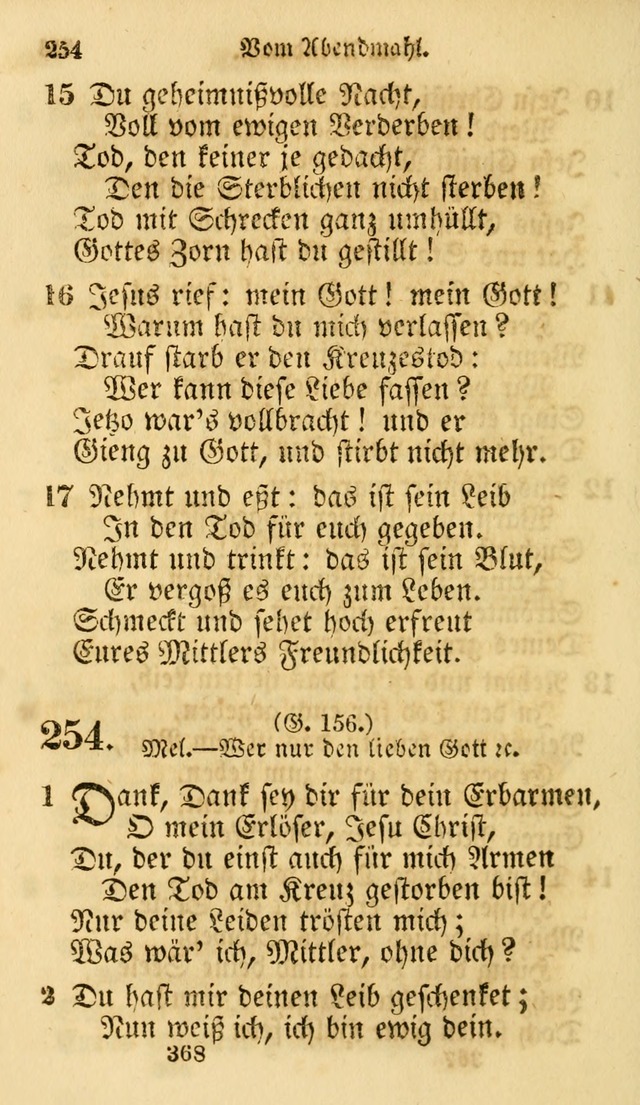 254 Vom Abendmahl.
15 Du geheimnißvolle Nacht,
Voll vom ewigen Verderben!
Tod, den keiner je gedacht,
Den die Sterblichen nicht sterben!
Tod mit Schrecken ganz umhüllt,
Gottes Zorn hast du gestillt!
16 Jesus rief: mein Gott! mein Gott!
Warum hast du mich verlassen?
Drauf starb er den Kreuzestod:
Wer kann diese Liebe fassen?
Jetzo war's vollbracht! und er
Gieng zu Gott, und stirbt nicht mehr.
17 Nehmt und eßt: das ist sein Leib
In den Tod für euch gegeben.
Nehmt und trinkt: das ist sein Blut,
Er vergoß es euch zum Leben.
Schmeckt und sehet hoch erfreut
Eures Mittlers Freundlichkeit.
254. (G. 156.)
Mel.—Wer nur den lieben Gott ꝛc.
1 Dank, Dank sey dir für dein Erbarmen,
O mein Erlöser, Jesu Christ,
Du, der du einst auch für mich Armen
Den Tod am Kreuz gestorben bist!
Nur deine Leiden trösten mich;
Was wär' ich, Mittler, ohne dich?
2 Du hast mir deinen Leib geschenket;
Nun weiß ich, ich bin ewig dein.
368